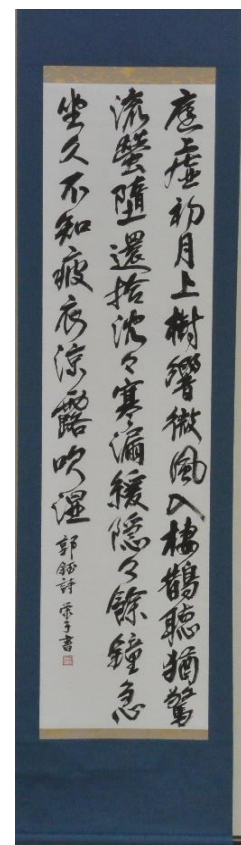 庭虚初月上樹響微風入棲鵲聴猶驚
流螢墮還拾沈々寒漏緩隠々餘鐘急
坐久不知疲衣涼露吹湿 郭鈺詩 榮子書